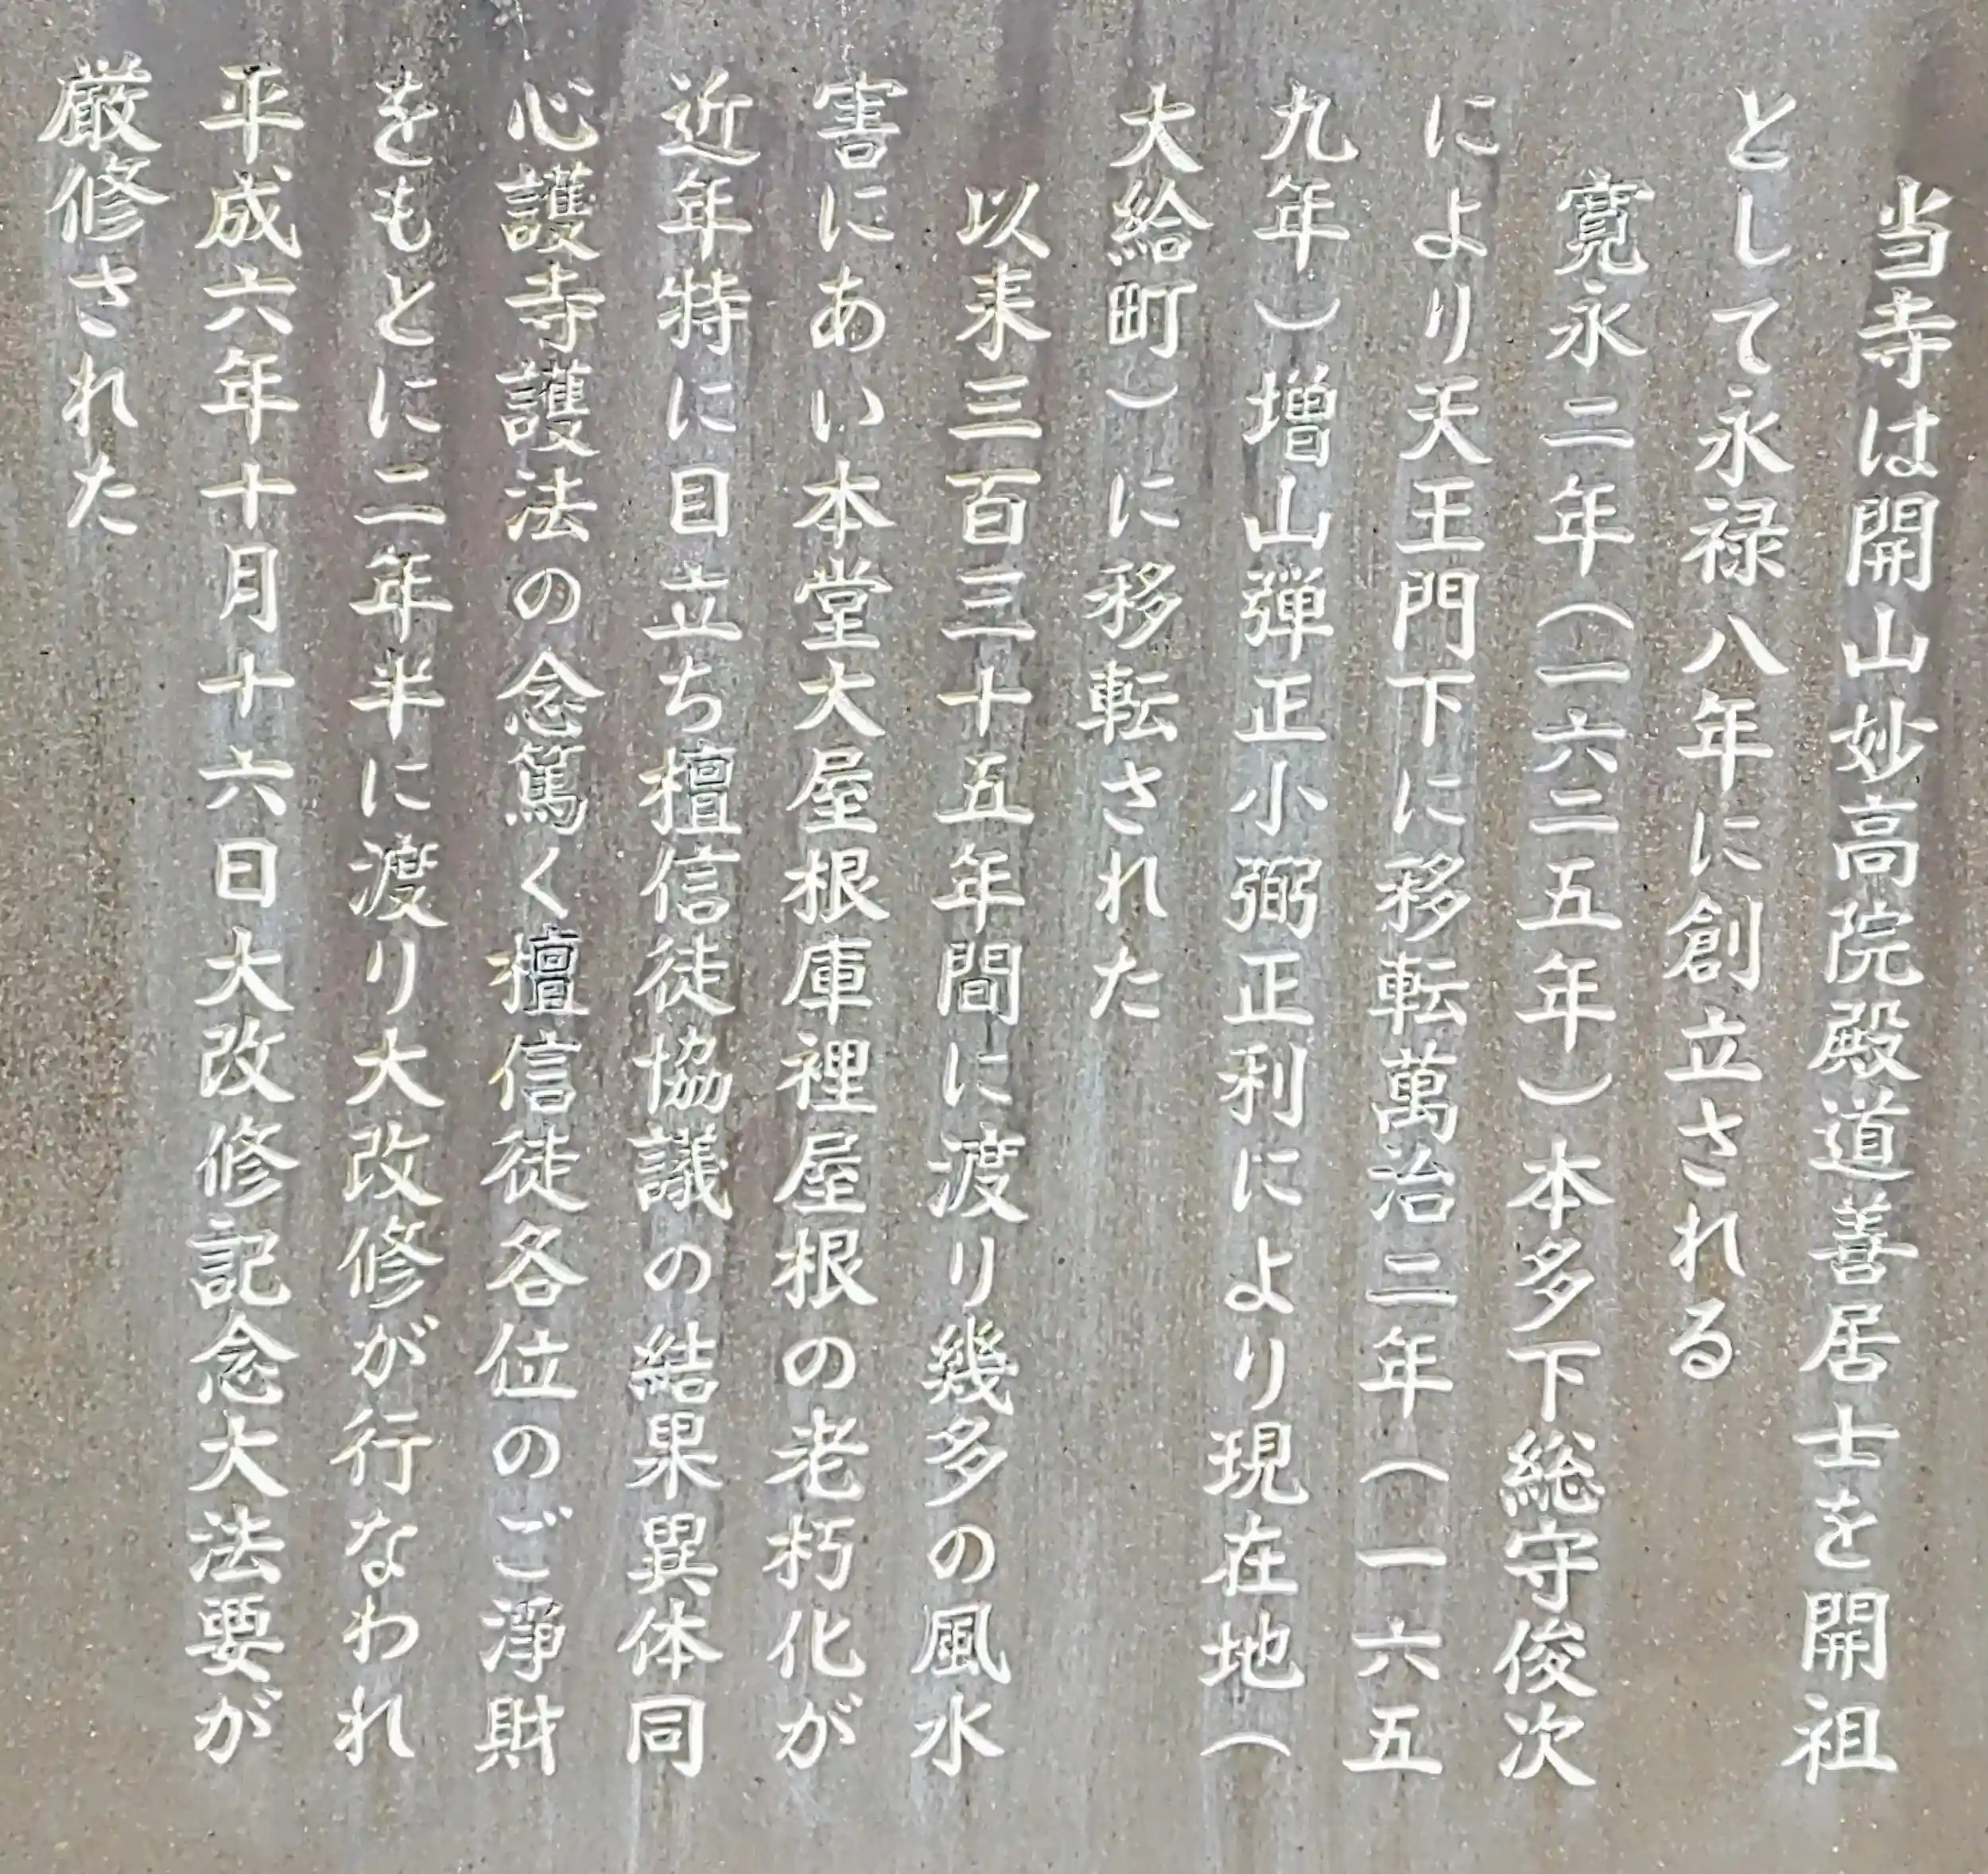 当寺は開山妙高院殿道善居士を開祖
として永禄八年に創立される
寛永二年（一六二五年）本多下総守俊次
により天王門下に移転萬治二年（一六五
九年）増山弾正小弼正利により現在地（
大給町）に移転された
以来三百三十五年間に渡り幾多の風水
害にあい本堂大屋根庫裡屋根の老朽化が
近年特に目立ち檀信徒協議の結果異体同
心護寺護法の念篤く檀信徒各位のご淨財
をもとに二年半に渡り大改修が行なわれ
平成六年十月十六日大改修記念大法要が
厳修された